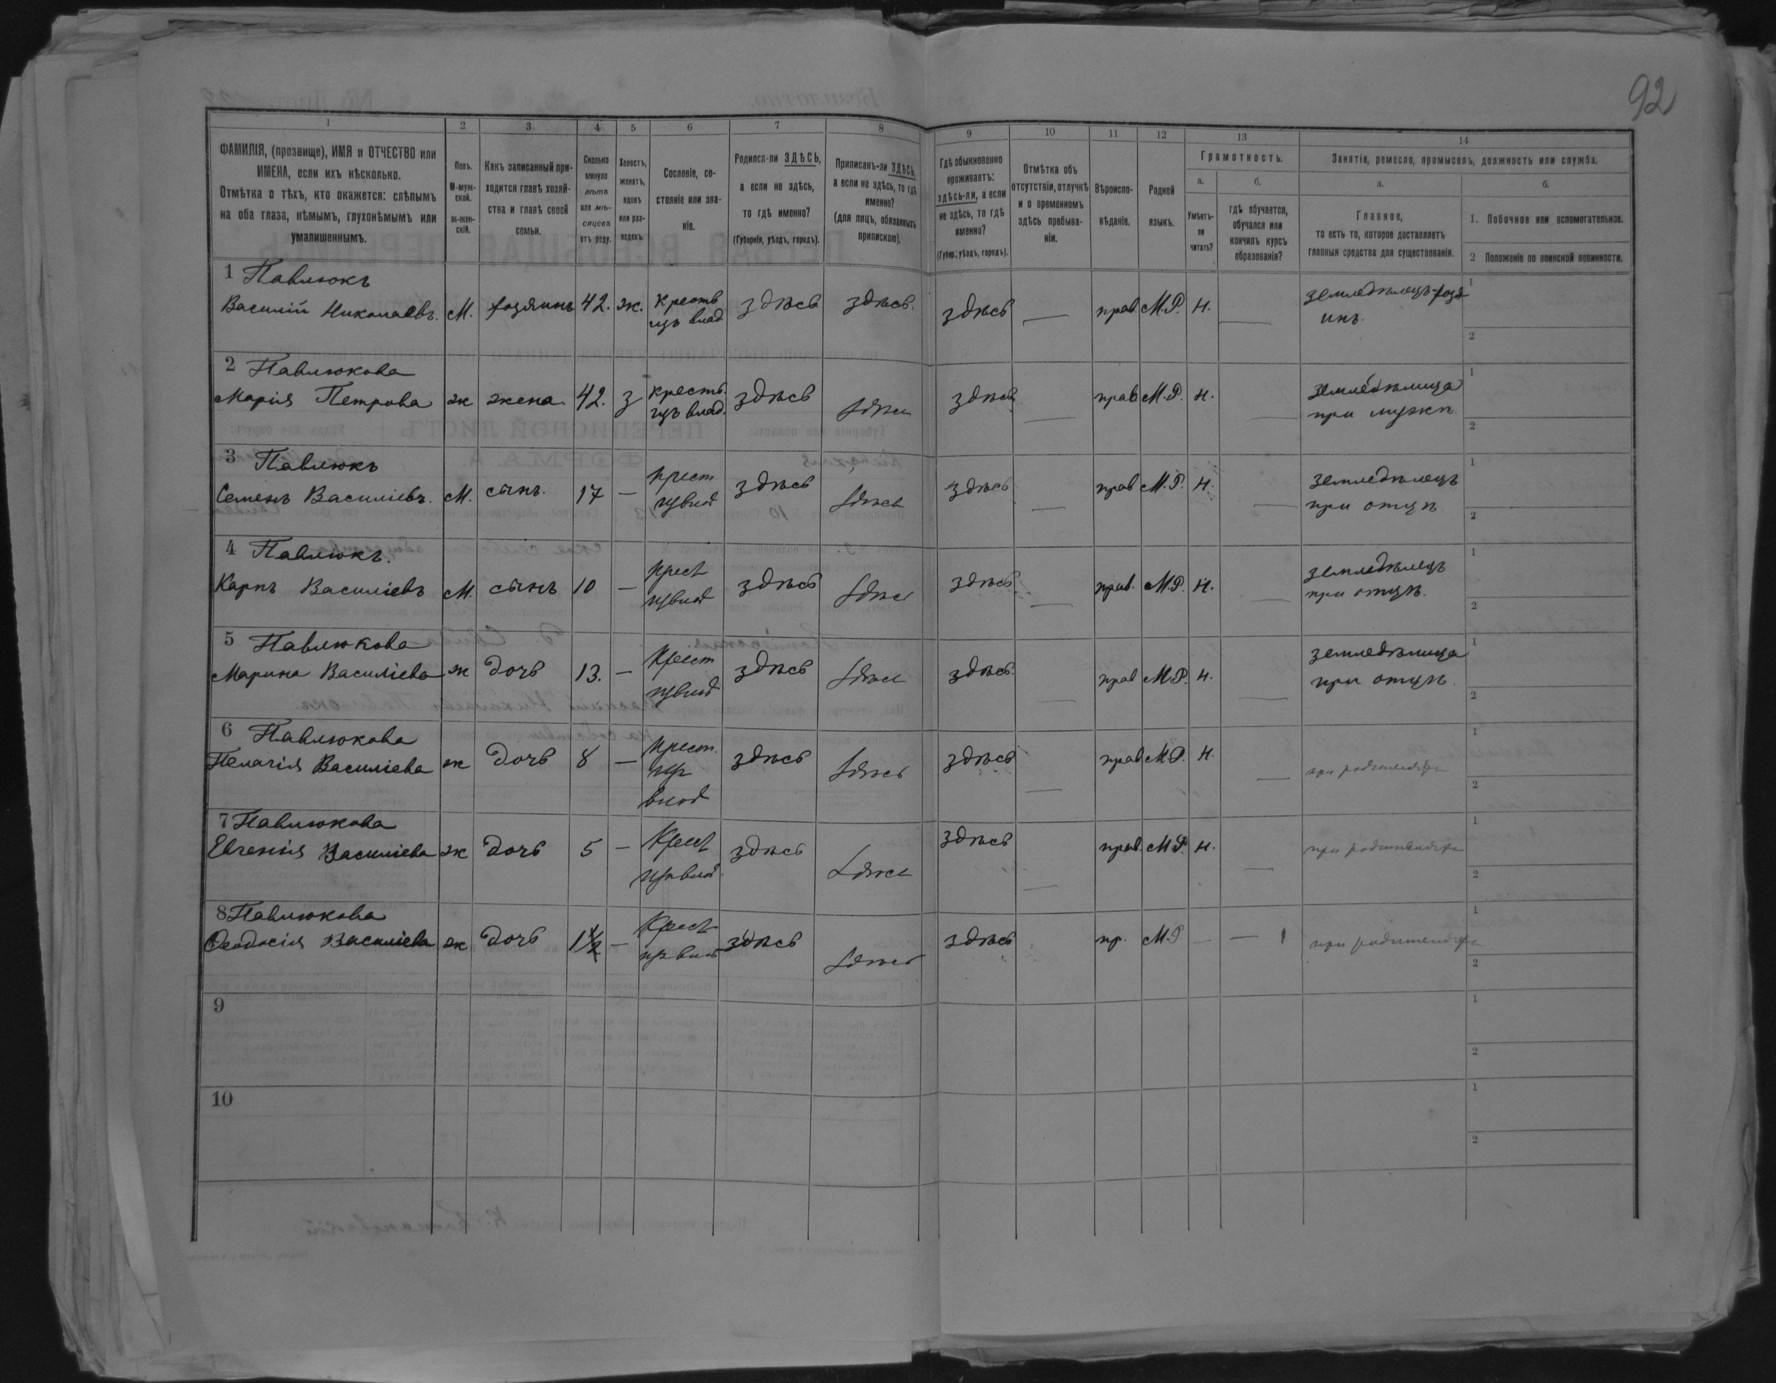 92
1 2 3 4 5 6 7 8 9 10 11 12 13 14
ФАМИЛІЯ, (прозвище), ИМЯ и ОТЧЕСТВО или
ИМЕНА, если ихъ нѣсколько.
Отмѣтка о тѣхъ, кто окажется: слѣпымъ
на оба глаза, нѣмымъ, глухонѣмымъ или
умалишеннымъ.
Полъ.
М-муж-
ской.
ж-жен-
скій.
Какъ записанный при-
ходится главѣ хозяй-
ства и главѣ своей
семьи.
Сколько
минуло
лѣтъ
или мѣ-
сяцевъ
отъ роду.
Холостъ,
женатъ,
вдовъ
или раз-
веденъ.
Сословіе, со-
стояніе или зва-
ніе.
Родился-ли ЗДѢСЬ,
а если не здѣсь,
то гдѣ именно?
(Губернія, уѣздъ, городъ).
Приписанъ-ли ЗДѢСЬ,
а если не здѣсь, то гдѣ
именно?
(для лицъ, обязанныхъ
припискою).
Гдѣ обыкновенно
проживаетъ:
здѣсь-ли, а если
не здѣсь, то гдѣ
именно?
(Губер., уѣздъ, городъ).
Отмѣтка объ
отсутствіи, отлучкѣ
и о временномъ
здѣсь пребыва-
ніи.
Вѣроиспо-
вѣданіе.
Родной
языкъ.
Грамотность.
а.
Умѣетъ-
ли
читать?
б.
гдѣ обучается,
обучался или
кончилъ курсъ
образованія?
Занятіе, ремесло, промыселъ, должность или служба.
а.
Главное,
то есть то, которое доставляетъ
главныя средства для существованія.
б.
1. Побочное или вспомогательное.
2 Положеніе по воинской повинности.
1 Павлюкъ
Василій Николаевъ. М. хозяинъ 42. ж. крестья
нъ влад здѣсь здѣсь. здѣсь — прав. М.Р. н. — земледѣлецъ-хозя
инъ.
1
2
2 Павлюкова
Марія Петрова ж жена 42. з крестья
нъ влад. здѣсь здѣсь здѣсь — прав М.Р. н. — земледѣлица
при мужѣ.
1
2
3 Павлюкъ
Семенъ Василіевъ. М. сынъ. 17 — крест
здѣсь здѣсь здѣсь — прав М.Р. н. — земледѣлецъ
при отцѣ
1
2
4 Павлюкъ.
Карпъ Василіевъ М. сынъ 10 — крест
здѣсь здѣсь здѣсь — прав. М.Р. н. — земледѣлецъ
при отцѣ.
1
2
5 Павлюкова
Марина Василіева ж дочь 13. — крест
здѣсь здѣсь здѣсь. — прав М.Р. н. — земледѣлица
при отцѣ.
1
2
6 Павлюкова
Пелагія Василіева ж дочь 8 — крест.
здѣсь здѣсь здѣсь — прав М.Р. н. — при родителяхъ
1
2
7 Павлюкова
Евгенія Василіева ж дочь 5 — крест
здѣсь здѣсь здѣсь — прав. М.Р. н. — при родителяхъ
1
2
8 Павлюкова
Феодосія Василіева ж дочь — крест
здѣсь здѣсь здѣсь пр. М.Р — — при родителяхъ
1
2
9
1
2
10
1
2